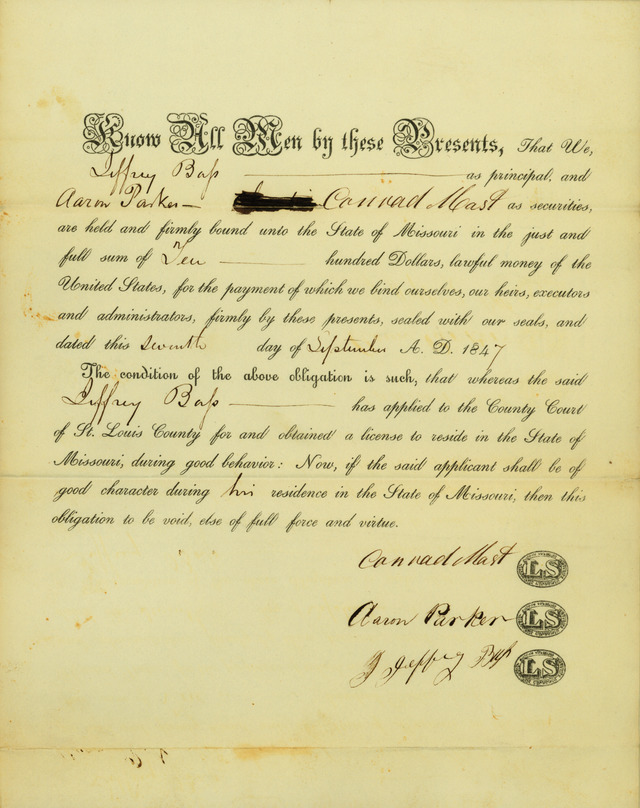 Know All Men by these Presents, That We,
Jeffrey Bass as principal, and
Aaron Parker Conrad Mast as securities,
are held and firmly bound unto the State of Missouri in the just and
full sum of Ten hundred Dollars, lawful money of the
United States, for the payment of which we bind ourselves, our heirs, executors
and administrators, firmly by these presents, sealed with our seals, and
dated this Seventh day of September A. D. 1847
The condition of the above obligation is such, that whereas the said
Jeffrey Bass has applied to the County Court
of St. Louis County for and obtained a license to reside in the State of
Missouri, during good behavior: Now, if the said applicant shall be of
good character during his residence in the State of Missouri, then this
obligation to be void, else of full force and virtue.
Conrad Mast LS
Aaron Parker LS
J Jeffrey Bass LS